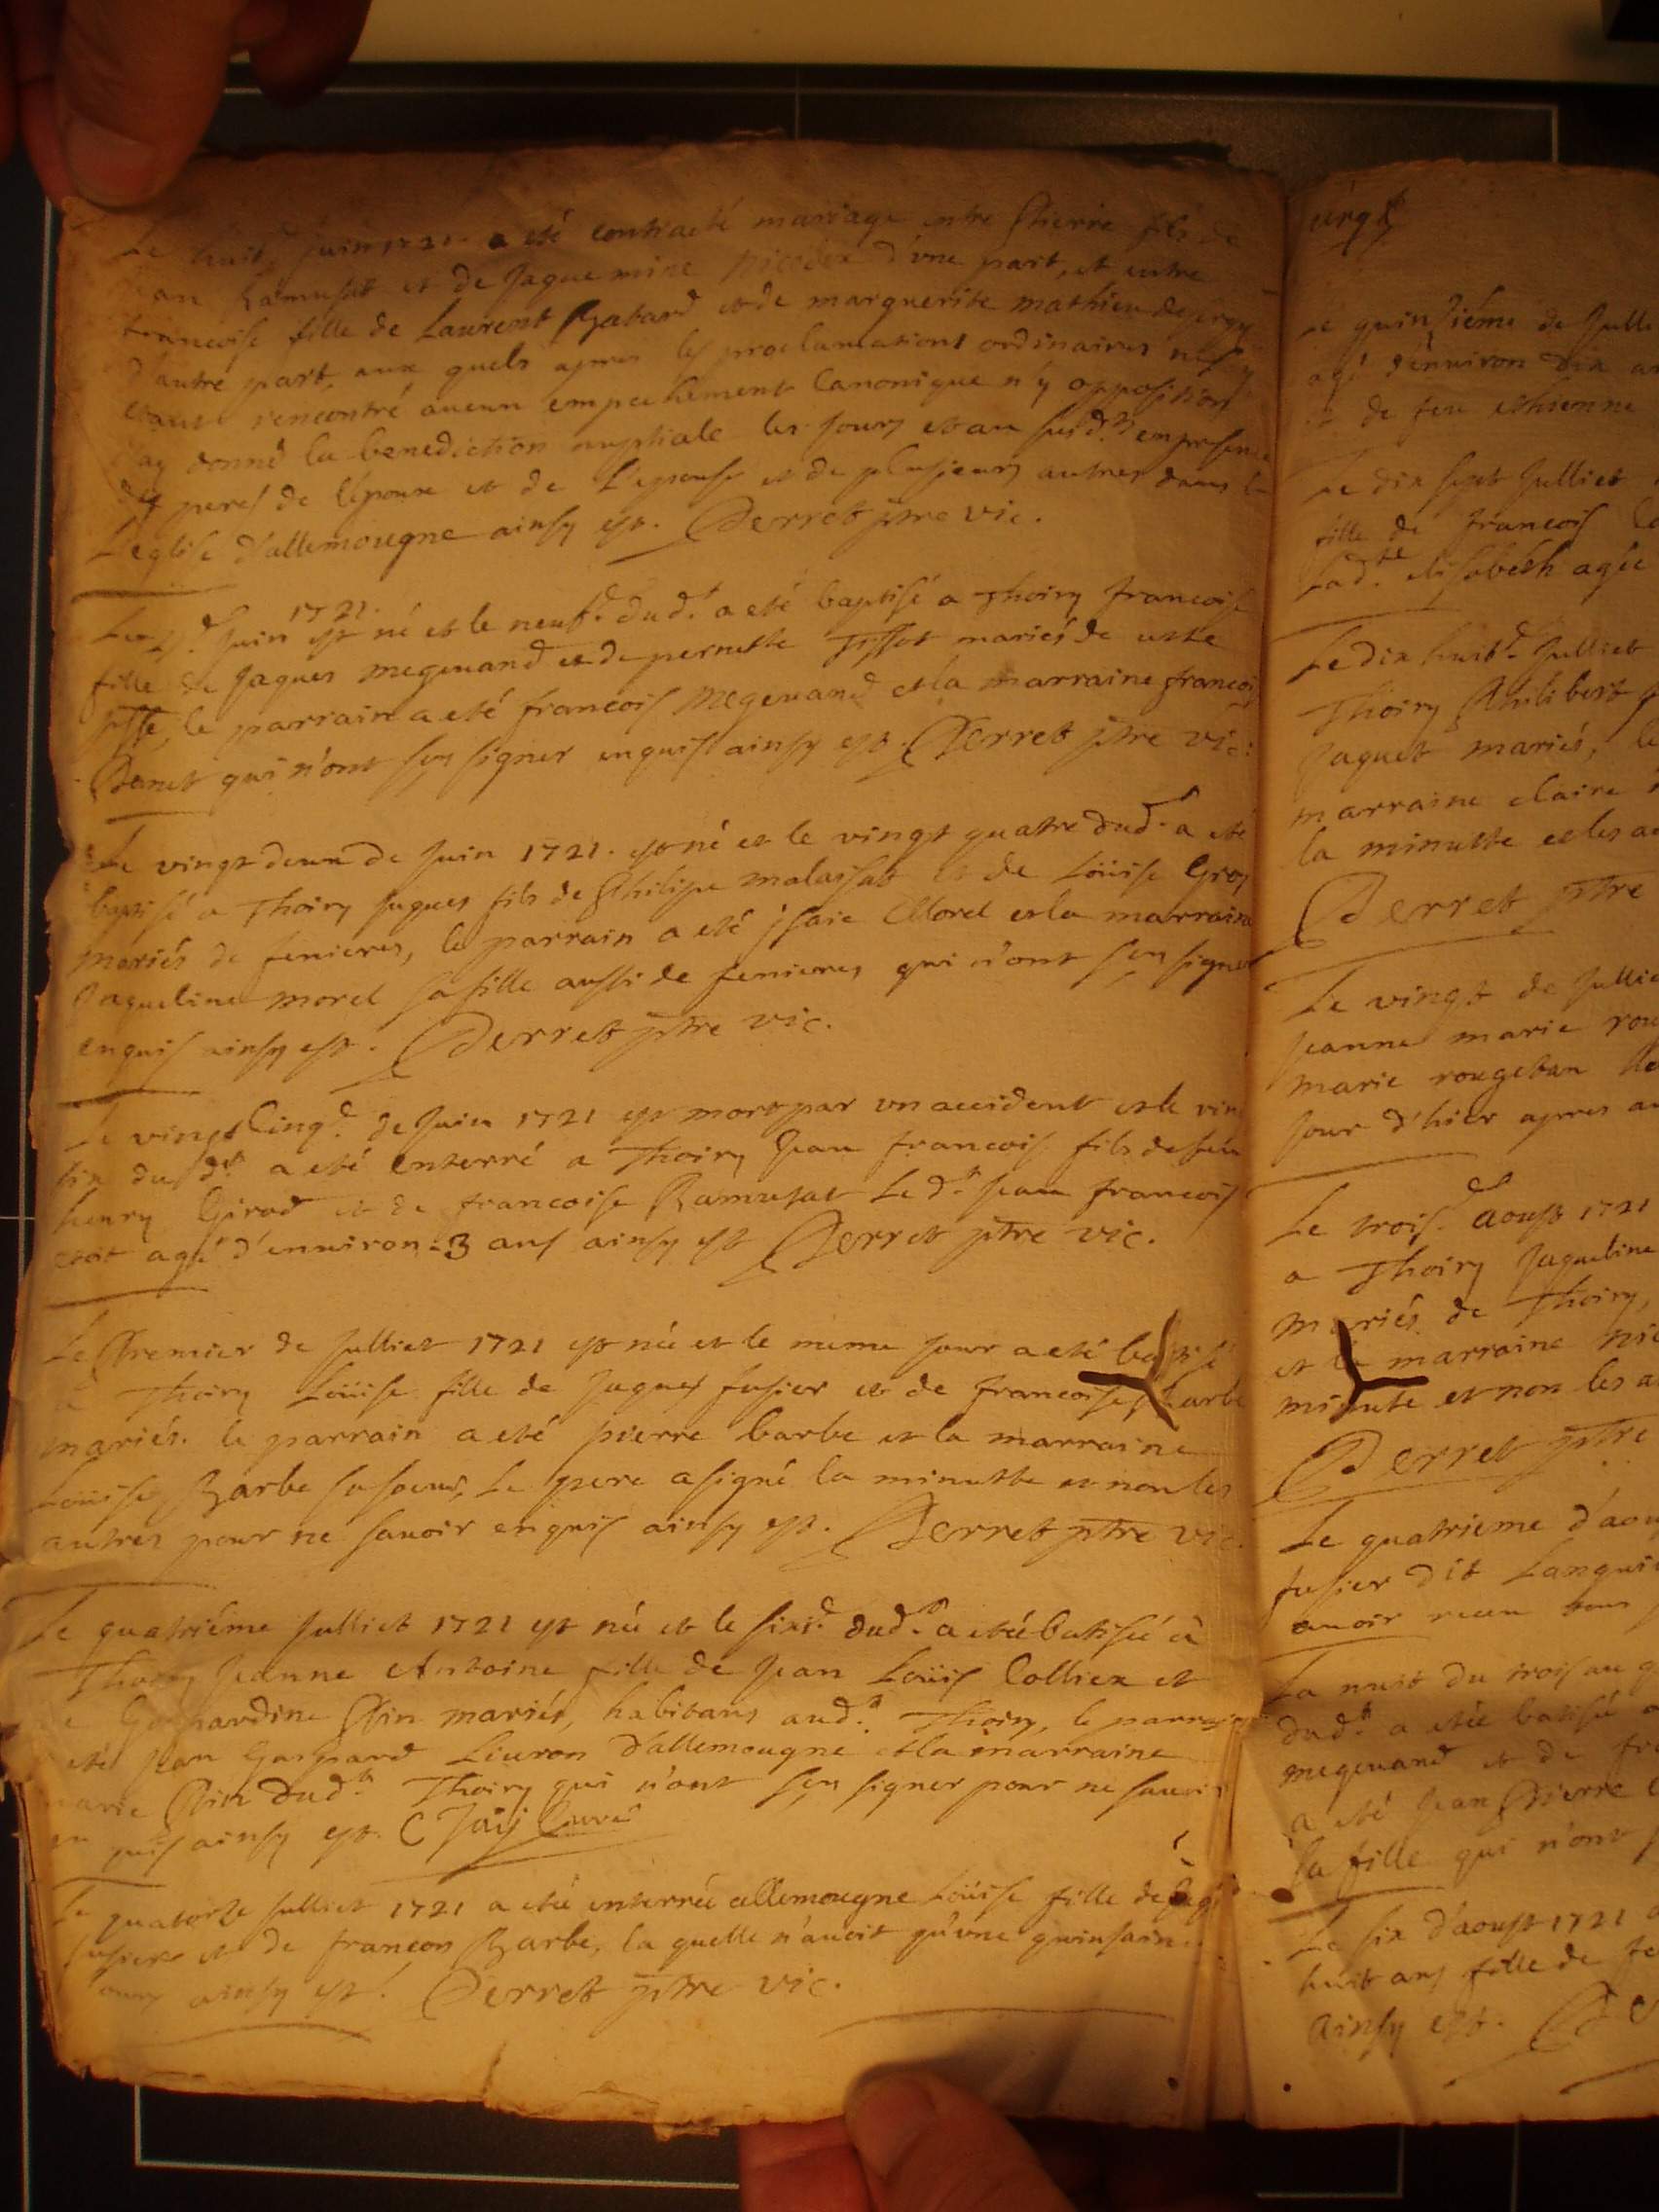 Le huit juin 1721 a eté contracté mariage entre Pierre fils de
Jean Ramusat et de Jaquemine d'vne part, et entre
francoise fille de Laurent Batard et de marguerite mathieu de
d'autre part, aux quels apres les proclamations ordinaires
rencontré aucun empechement Canonique n'y opposition
J'ay donné la benediction nuptiale les jours et an susd.ts en presence
des peres de l'Epoux et de L'epouse et de plusieurs autres dans
L'eglise d'allemougne ainsy est. Perret ptre vic.
1721.
Juin est né et le neuf.e dud.t a eté baptisé a Thoiry francoise
fille de Jaques megeuand et de pernette Tissot mariés de cette
psse, le parrain a eté francois Megeuand et la marraine francoise
qui n'ont sçu signer enquis ainsy est. Perret ptre vic:
Le vingt deux de Juin 1721. est né et le vingt quatre dud.t a eté
baptisé a Thoiry Jaques fils de Philipe malaisat et de Loüise Gros
mariés de fenieres, le parrain a eté jsaie Morel et la marraine
Jaqueline morel sa fille aussi de fenieres qui n'ont sçu signer
enquis ainsy est. Perret ptre vic.
Le vingt Cinq.e de Juin 1721 est mort par vn accident et le vin
six dud.t a eté enterré a Thoiry Jean francois fils de feu
henry Girod et de francoise Ramusat Le d.t Jean francois
etoit agé d'enuiron 3 ans ainsy est Perret ptre vic.
Le Premier de Julliet 1721 est née et le meme jour a eté baptisé
a Thoiry Loüise fille de Jaques fusier et de francoise Barbe
mariés. le parrain a eté pierre barbe et la marraine
Loüise Barbe sa soeur, Le pere a signé la minutte et non les
autres pour ne sauoir enquis ainsy est. Perret ptre vic.
Le quatriéme Julliet 1721 est née et le sixi.e dud.t a etée batisée à
Thoiry Jeanne Antoine fille de Jean Loüis Colliex et
Pin mariés, habitans aud.t Thoiry, le parrain
eté Jean Gaspard Liuron d'allemougne et la marraine
marie Pin dud.t Thoiry qui n'ont sçu signer pour ne sauoir
enquis ainsy est. C Jaÿ Curé
Le quatorze Julliet 1721 a eté enterrée allemougne Loüise fille de
fusier et de francois Barbe, la quelle n'auoit qu'vne quinsaine
jours ainsy est. Perret ptre vic.
Le quinsiéme de Julli
agé d'enuiron dix an
et de feu ethienne
Le dix sept Julliet
fille de francois
Lad.te elisabeth agée
Le dix huit.e Julliet
Thoiry Philibert
Jaquet mariés, le
marraine claire
la minutte et les au
Perret ptre
Le vingt de Jullie
Jeanne marie rou
marie rougetan
jour d'hier apres au
Le trois.e aoust 1721
a Thoiry Jaqueline
mariés de Thoiry,
et la marraine
minute et non les a
Perret ptre
Le quatrieme d'aou
fusier dit Languis
auoir receu tous
La nuit du trois au q
dud.t a etée batisée a
megeuand et de fra
a eté Jean Pierre
sa fille qui n'ont
Le six d'aoust 1721
huit ans fille de fe
Ainsy est.